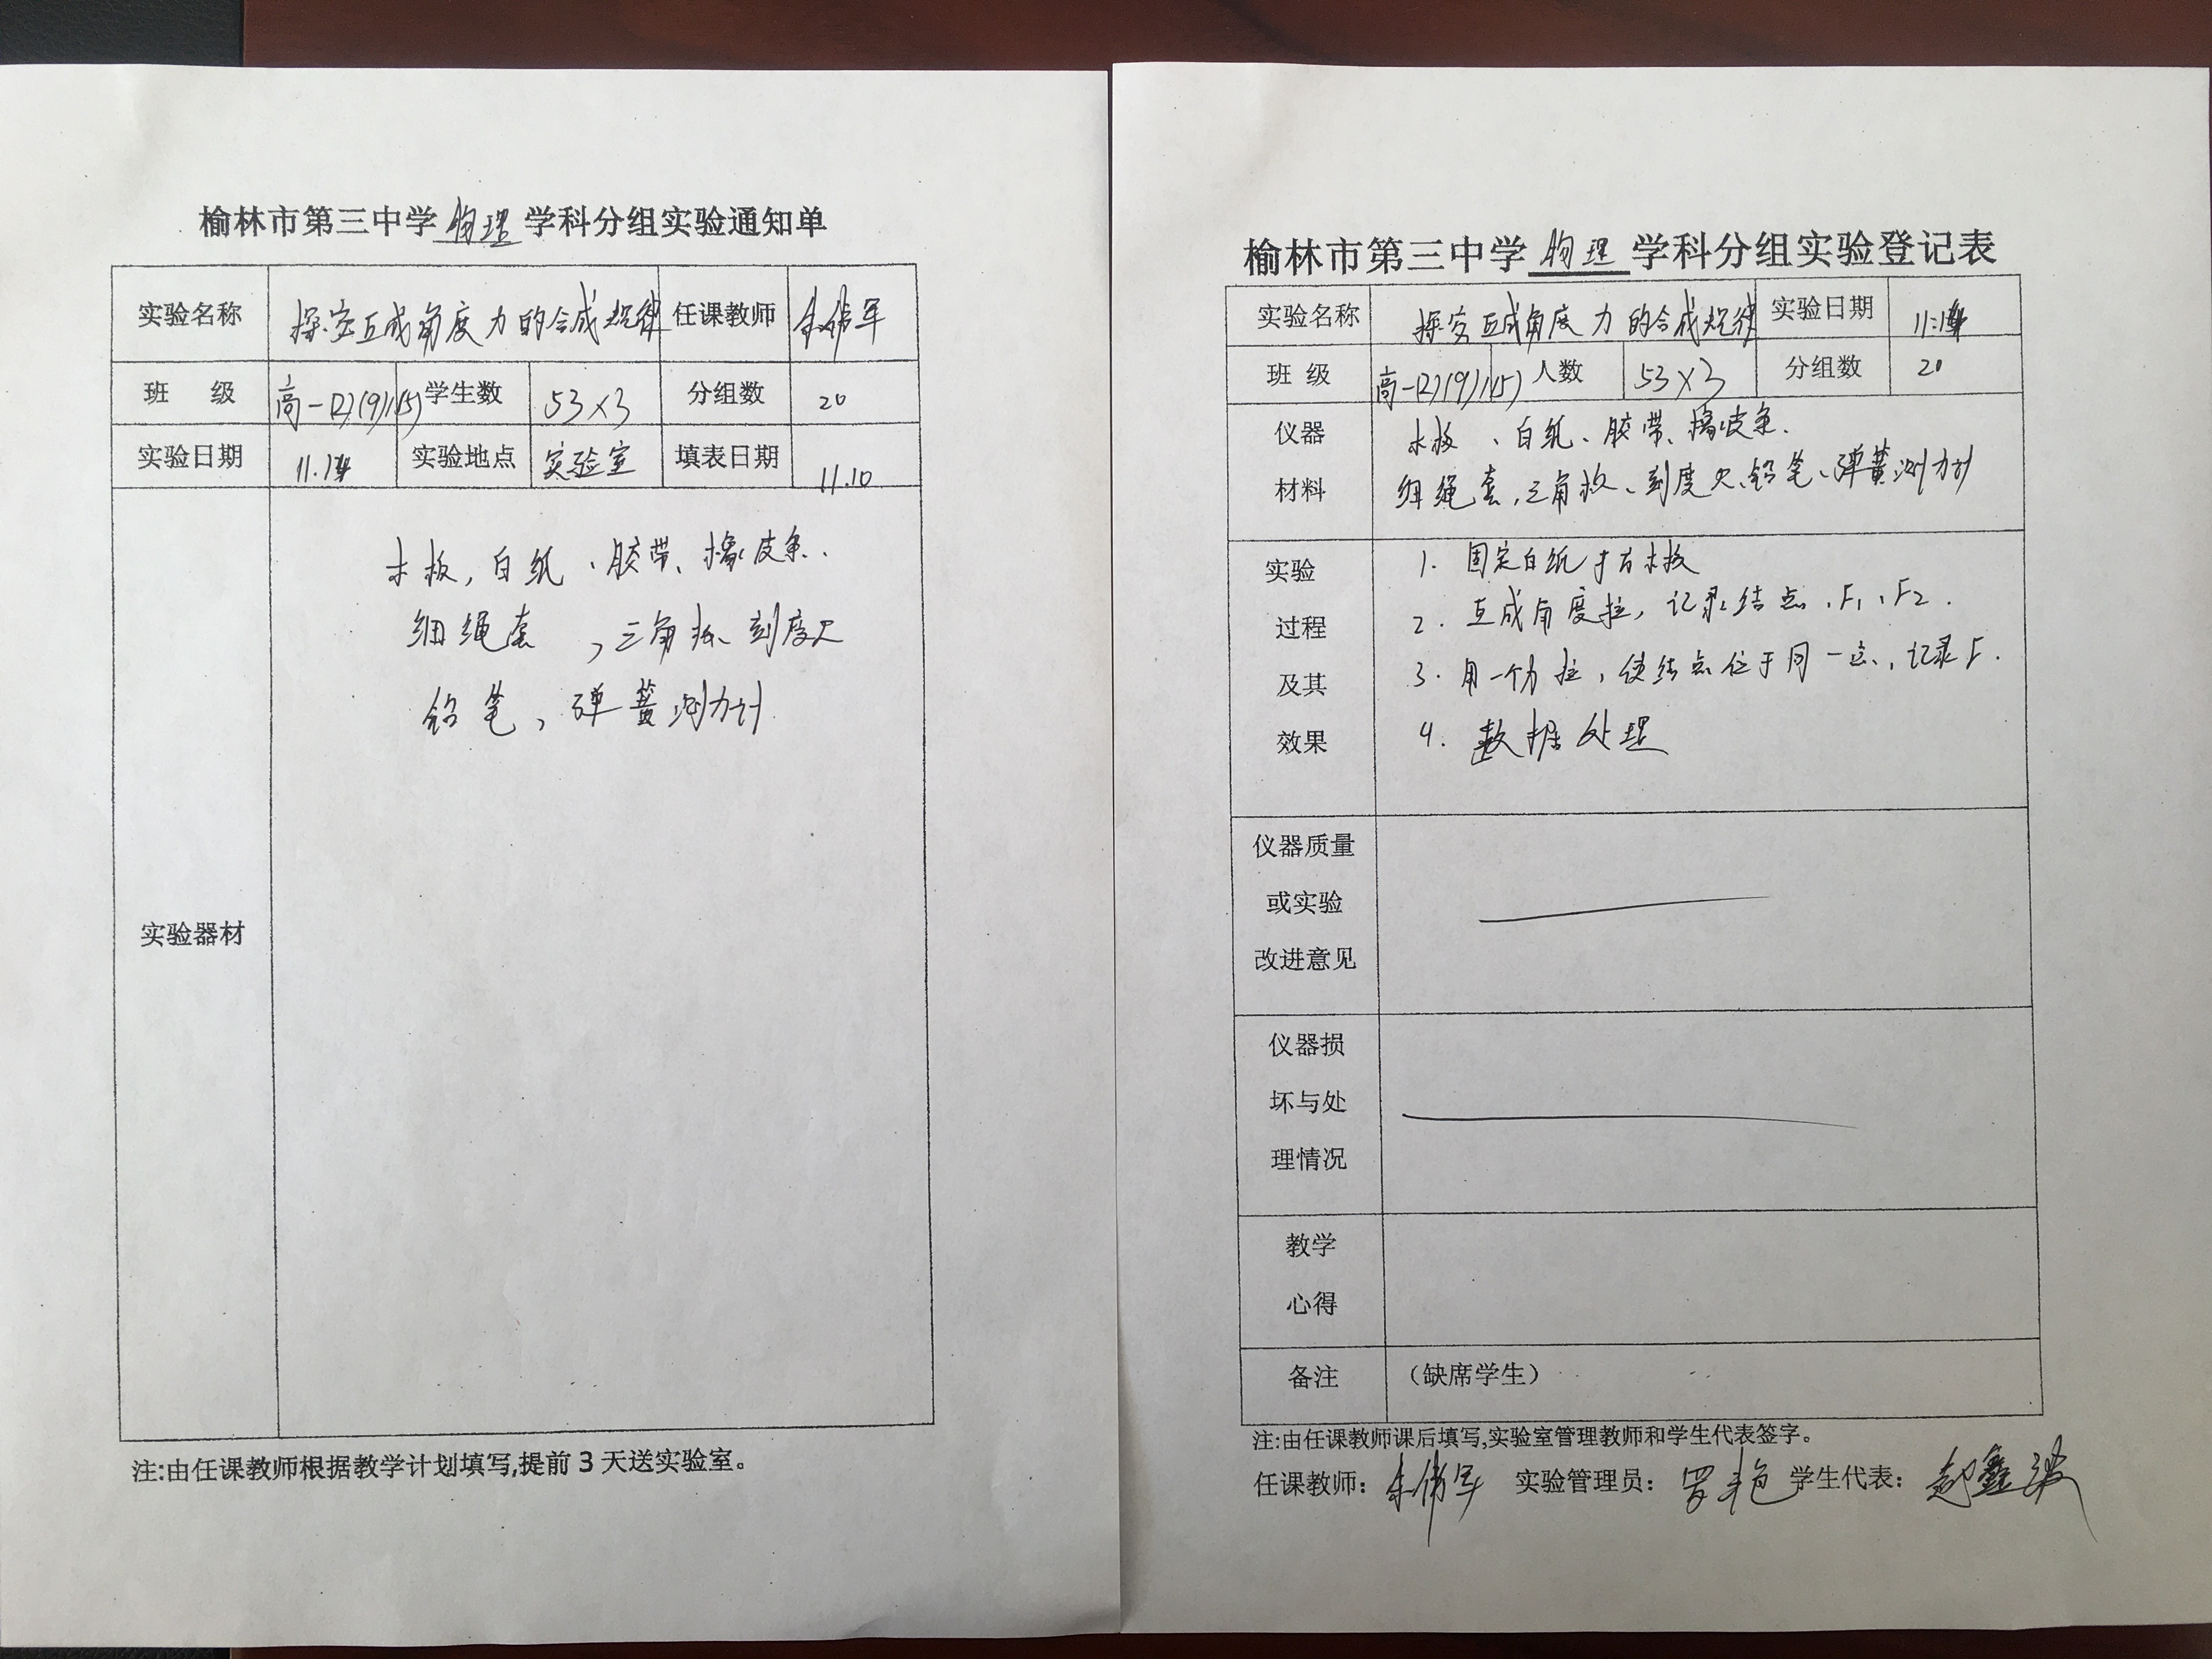 榆林市第三中学物理学科分组实验通知单
实验名称 探究互成角度力的合成规律 任课教师 朱伟军
班 级 高一(2)(9)(15) 学生数 53×3 分组数 20
实验日期 实验地点 实验室 填表日期 11.10
实验器材
木板,白纸、胶带、橡皮条.
细绳套,三角板、刻度尺
铅笔,弹簧测力计
注:由任课教师根据教学计划填写,提前3天送实验室。
榆林市第三中学物理学科分组实验登记表
实验名称 探究互成角度力的合成规律 实验日期
班 级 高一(2)(9)(15) 人数 53×3 分组数 20
仪器
材料
木板、白纸、胶带、橡皮条.
细绳套,三角板、刻度尺、铅笔、弹簧测力计
实验
过程
及其
效果
1. 固定白纸于方木板
2. 互成角度拉,记录结点、F1、F2.
3. 用一个力拉,使结点位于同一点,记录F.
4. 数据处理
仪器质量
或实验
改进意见
仪器损
坏与处
理情况
教学
心得
备注 (缺席学生)
注:由任课教师课后填写,实验室管理教师和学生代表签字。
任课教师:朱伟军 实验管理员: 学生代表:赵鑫波